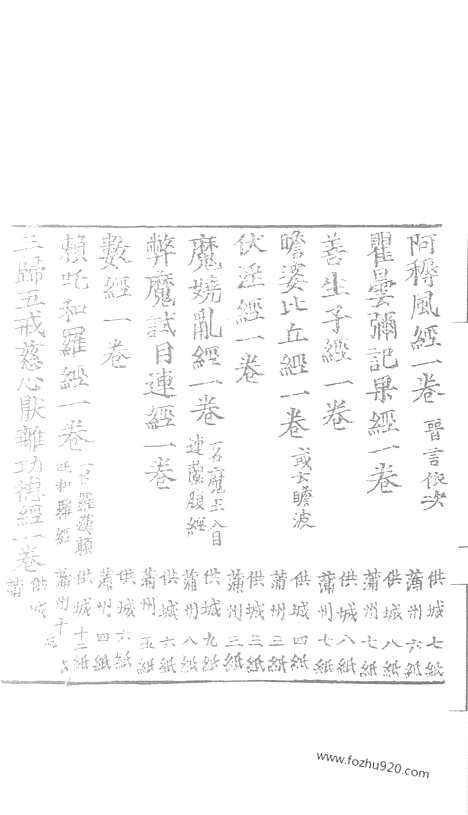 阿耨風經一卷 晉言依次 供城七紙 蒲州六紙
瞿曇彌記果經一卷 供城八紙 蒲州七紙
善生子經一卷 供城八紙 蒲州七紙
瞻婆比丘經一卷 或云瞻波 供城四紙 蒲州三紙
伏淫經一卷 供城三紙 蒲州三紙
魔嬈亂經一卷 一名魔王入目連蘭腹經 供城九紙 蒲州八紙
弊魔試目連經一卷 供城六紙 蒲州五紙
數經一卷 供城六紙 蒲州四紙
賴吒和羅經一卷 羅漢賴吒和羅經 供城十二紙 蒲州十
三歸五戒慈心厭離功德經一卷 供城 蒲
www.fozhu920.com